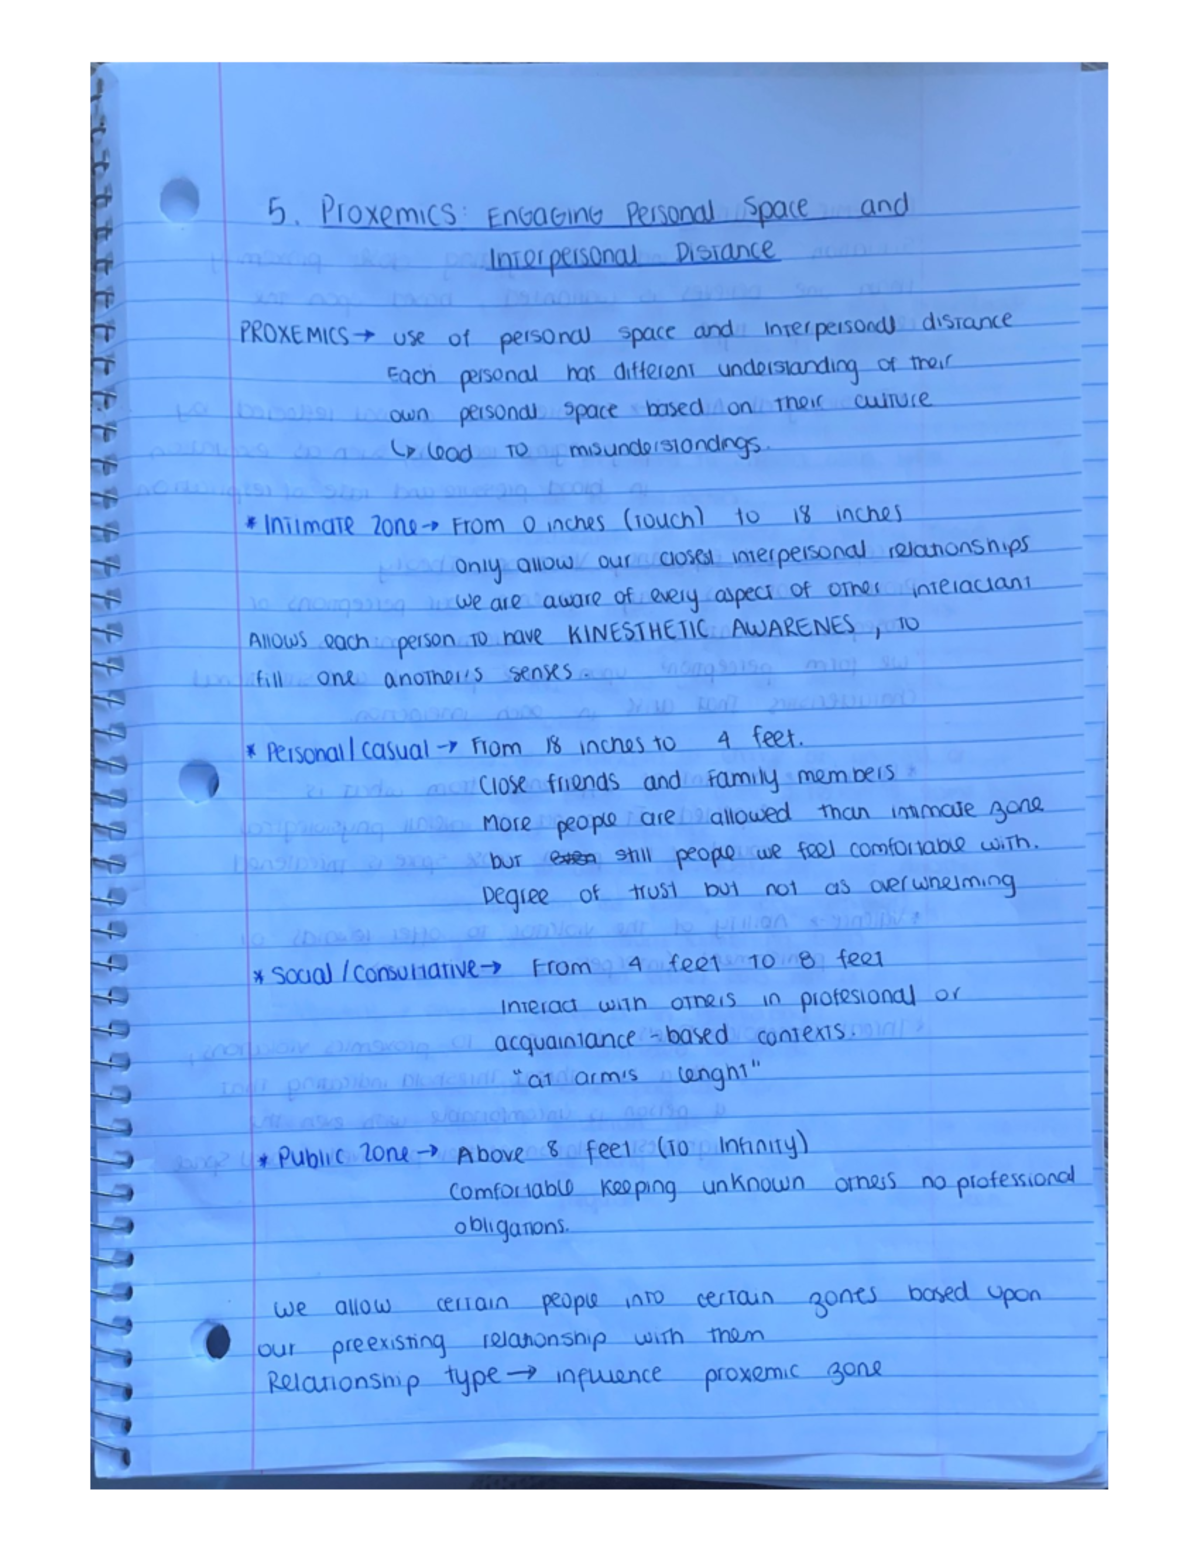 5. Proxemics: Engaging Personal Space and
Interpersonal Distance
PROXEMICS → use of personal space and interpersonal distance
Each personal has different understanding of their
own personal space based on their culture
↳ lead to misunderstandings.
* Intimate zone → From 0 inches (touch) to 18 inches
only allow our closest interpersonal relationships
we are aware of every aspect of other interactant
Allows each person to have KINESTHETIC AWARENES, to
fill one another's senses.
* Personal/casual → From 18 inches to 4 feet.
Close friends and family members
More people are allowed than intimate zone
but even still people we feel comfortable with.
Degree of trust but not as overwhelming
* Social/consultative → From 4 feet to 8 feet
Interact with others in profesional or
acquaintance-based contexts.
"at arm's lenght"
* Public zone → Above 8 feet (to infinity)
Comfortable keeping unknown others no professional
obligations.
We allow certain people into certain zones based upon
our preexisting relationship with them
Relationship type → influence proxemic zone